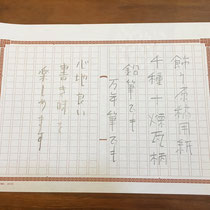 飾り原稿用紙
千種十焼瓦柄
鉛筆でも
万年筆でも
心地良い
書き味を
楽しめます